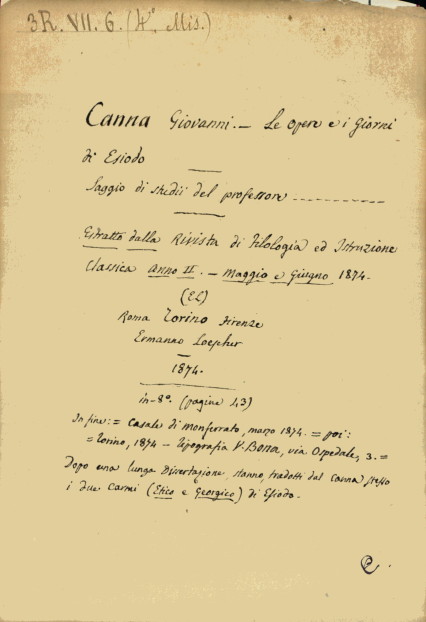 3R. VII. 6. (4° Mis.)
Canna Giovanni. — Le Opere e i Giorni
di Esiodo
Saggio di studii del professore
Estratto dalla Rivista di Filologia ed Istruzione
Classica Anno II. — Maggio e Giugno 1874.
Roma Torino Firenze
Ermanno Loescher
1874.
in-8°. (pagine 43)
In fine: = Casale di Monferrato, marzo 1874. = poi:
= Torino, 1874 — Tipografia V. Bona, via Ospedale, 3. =
Dopo una lunga Dissertazione, stanno, tradotti dal Canna stesso
i due Carmi (Etico e Georgico) di Esiodo.